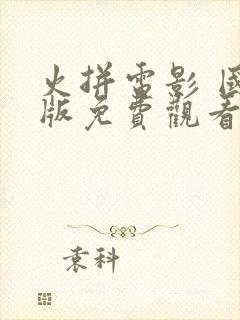 火拼雷影 國
版免費觀看
袁科